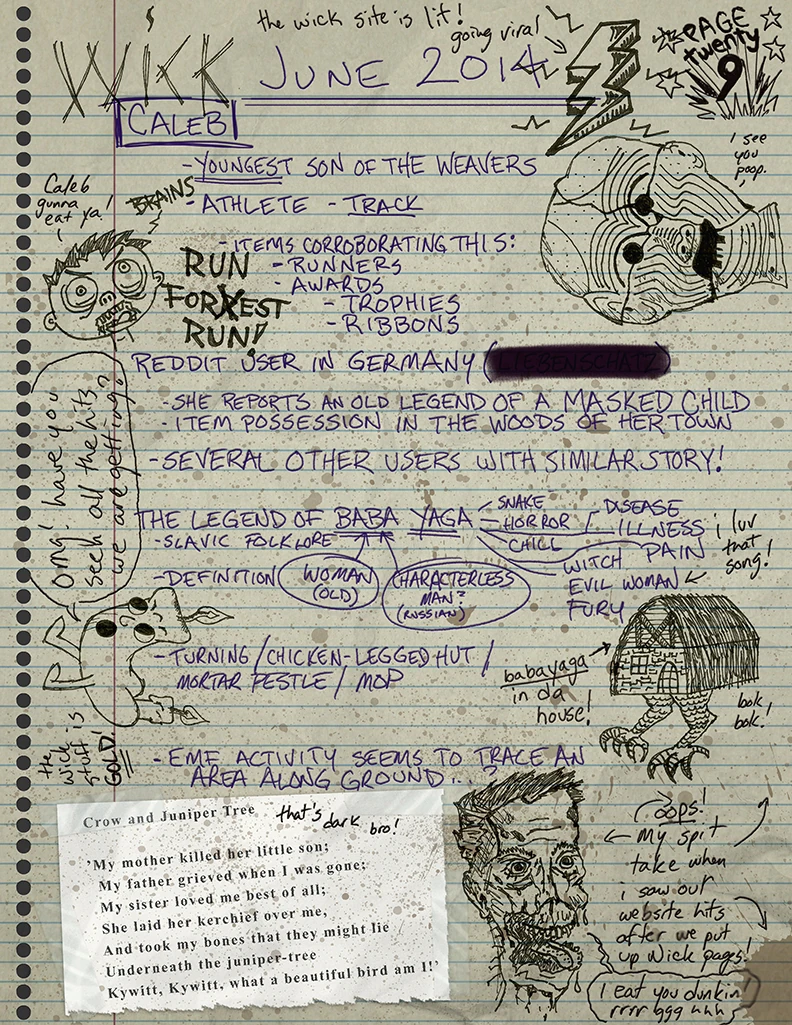 the wick site is lit!
going viral
WICK
JUNE 2014
PAGE
twenty
9
CALEB
I see
you
poop.
- YOUNGEST SON OF THE WEAVERS
Caleb
gunna
eat ya!
BRAINS
- ATHLETE - TRACK
- ITEMS CORROBORATING THIS:
- RUNNERS
- AWARDS
- TROPHIES
- RIBBONS
RUN
FORXEST
RUN!
REDDIT USER IN GERMANY (LIEBENSCHATZ)
- SHE REPORTS AN OLD LEGEND OF A MASKED CHILD
- ITEM POSSESSION IN THE WOODS OF HER TOWN
- SEVERAL OTHER USERS WITH SIMILAR STORY!
omg! have you
seen all the hits
we are getting?
THE LEGEND OF BABA YAGA
- SLAVIC FOLKLORE
SNAKE
HORROR
CHILL
DISEASE
ILLNESS
PAIN
WITCH
EVIL WOMAN
FURY
i luv
that
song!
- DEFINITION
WOMAN
(OLD)
CHARACTERLESS
MAN?
(RUSSIAN)
- TURNING / CHICKEN-LEGGED HUT /
MORTAR PESTLE / MOP
babayaga
in da
house!
bok
bok!
the
wick
stuff is
GOLD!
- EMF ACTIVITY SEEMS TO TRACE AN
AREA ALONG GROUND...?
Crow and Juniper Tree
that's
dark
bro!
'My mother killed her little son;
My father grieved when I was gone;
My sister loved me best of all;
She laid her kerchief over me,
And took my bones that they might lie
Underneath the juniper-tree
Kywitt, Kywitt, what a beautiful bird am I!'
oops!
my spit
take when
i saw our
website hits
after we put
up Wick pages!
I eat you dunkin!
rrrr ggg hhh